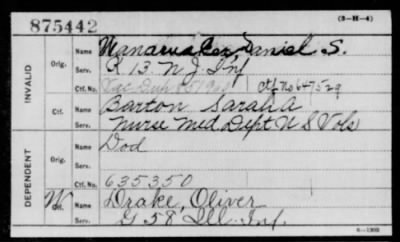 875442 (3-H-4)
INVALID
Orig.
Name Wanamaker Daniel S.
Serv. R 13 N J Inf
Ctf. No.
Ctf.
Name Barton Sarah A
Serv. Nurse Med Dept U S Vols
DEPENDENT
Orig.
Name Dod
Serv.
Ctf. No. 635350
W Ctf.
Name Drake, Oliver
Serv. G 58 Ill. Inf.